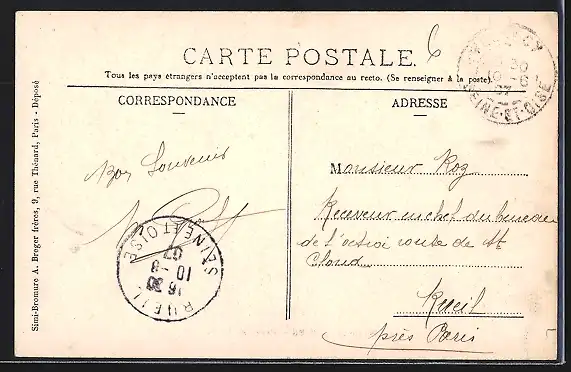 CARTE POSTALE.
6
Tous les pays étrangers n'acceptent pas la correspondance au recto. (Se renseigner à la poste).
CORRESPONDANCE
ADRESSE
Bon Souvenir
Monsieur Roz
Receveur en chef du bureau
de l'octroi route de St
Cloud
Rueil
près Paris
RUEIL
SEINE ET OISE
16 30
10 -8
07
SEINE-ET-OISE
30
07
Simi-Bromure A. Breger frères, 9, rue Thénard, Paris - Déposé